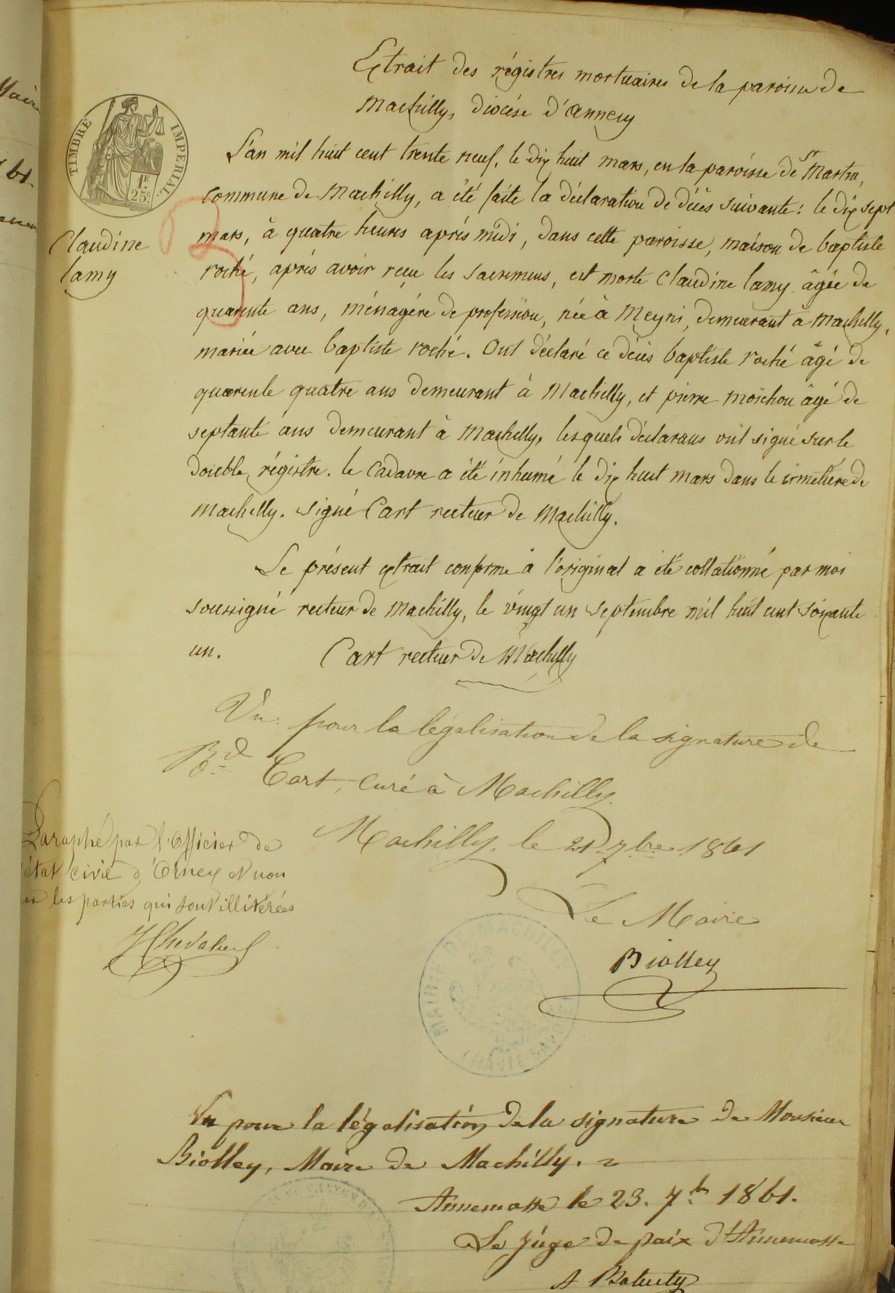 Extrait des régistres mortuaires de la paroisse de
Machilly, diocèse d'annecy
TIMBRE IMPERIAL
1F. 25c.
L'an mil huit cent trente neuf, le dix huit mars, en la paroisse de St Martin,
commune de Machilly, a été faite la déclaration de décès suivante: le dix sept
mars, à quatre heures après midi, dans cette paroisse, maison de baptiste
Claudine
lamy
roché, après avoir reçu les sacremens, est morte Claudine lamy âgée de
quarente ans, ménagère de profession, née à Meyni, demeurant à Machilly,
mariée avec baptiste roché. Ont déclaré ce décès baptiste roché âgé de
quarente quatre ans demeurant à Machilly, et pierre moichou âgé de
septante ans demeurant à Machilly, lesquels déclarans ont signé sur le
double régistre. le cadavre a été inhumé le dix huit mars dans le cimetière de
Machilly. signé Cart recteur de Machilly.
Le présent extrait conforme à l'original a été collationné par moi
soussigné recteur de Machilly, le vingt un septembre mil huit cent soixante
un. Cart recteur de Machilly
Vu pour la légalisation de la signature de
Rd Cart, curé à Machilly.
Machilly, le 21 7bre 1861
Paraphé par l'officier de
état civil d'Orney et non
les parties qui sont illitérées
Le Maire
Biolley
MAIRIE DE MACHILLY
Vu pour la légalisation de la signature de Monsieur
Biolley, Maire de Machilly.
Annemasse le 23. 7b 1861.
Le Juge de paix d'Annemasse